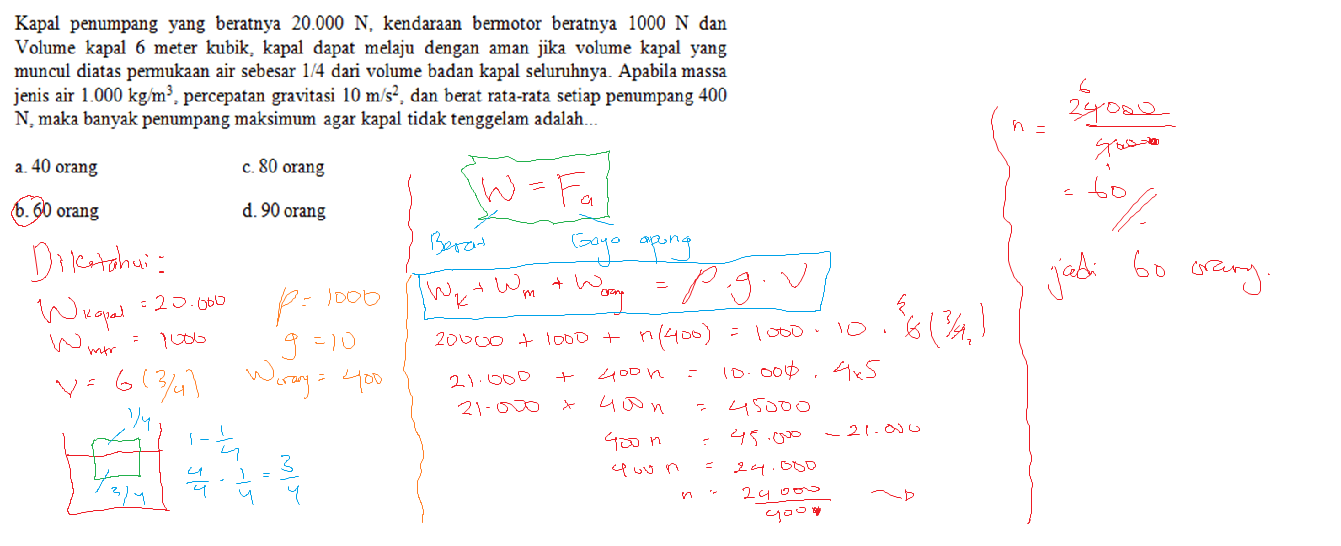 Kapal penumpang yang beratnya 20.000 N, kendaraan bermotor beratnya 1000 N dan
Volume kapal 6 meter kubik, kapal dapat melaju dengan aman jika volume kapal yang
muncul diatas permukaan air sebesar 1/4 dari volume badan kapal seluruhnya. Apabila massa
jenis air 1.000 kg/m³, percepatan gravitasi 10 m/s², dan berat rata-rata setiap penumpang 400
N, maka banyak penumpang maksimum agar kapal tidak tenggelam adalah...
a. 40 orang
c. 80 orang
b. 60 orang
d. 90 orang
Diketahui :
W kapal = 20.000
W mtr = 1000
V = 6 (3/4)
ρ = 1000
g = 10
W orang = 400
1/4
3/4
1 - 1/4
4/4 - 1/4 = 3/4
W = Fa
Berat
Gaya apung
Wk + Wm + Worang = ρ . g . V
20000 + 1000 + n(400) = 1000 . 10 . 6 (3/4)
21.000 + 400n = 10.000 . 4,5
21.000 + 400n = 45000
400n = 45.000 - 21.000
400n = 24.000
n = 24000/400
n = 24000/400
6
1
= 60 //
jadi 60 orang.